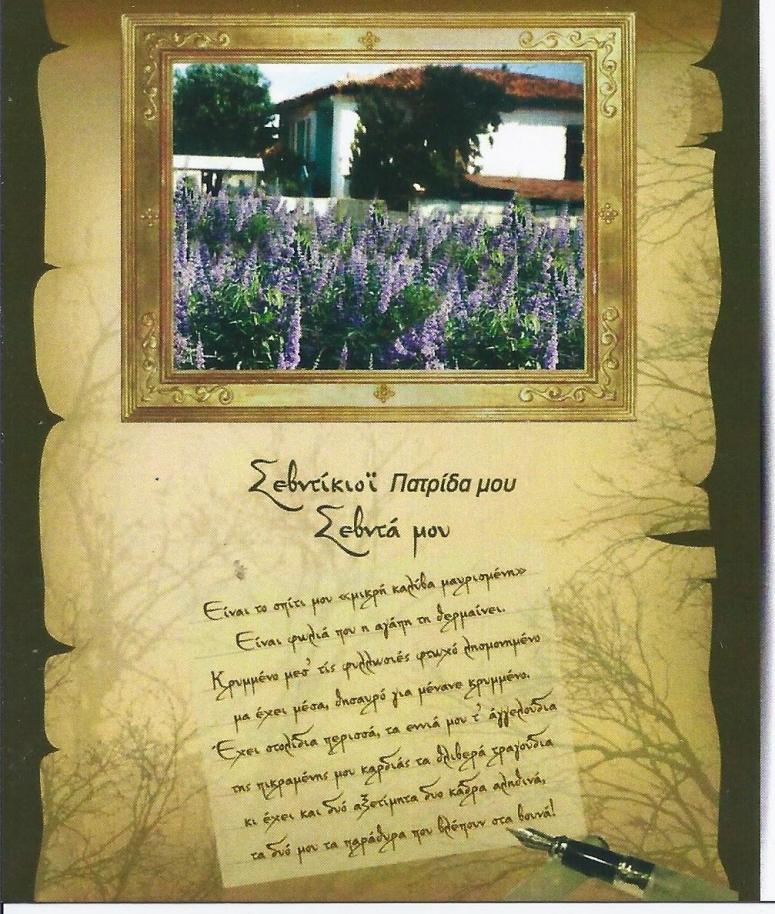 Σεβντίκιοϊ Πατρίδα μου
Σεβντά μου
Είναι το σπίτι μου «μικρή καλύβα μαυρισμένη»
Είναι φωλιά που η αγάπη τη θερμαίνει.
Κρυμμένο μεσ' τίς φυλλωσιές φτωχό λησμονημένο
μα έχει μέσα, θησαυρό για μένανε κρυμμένο.
Έχει στολίδια περισσά, τα εννιά μου τ' άγγελούδια
της πικραμένης μου καρδιάς τα θλιβερά τραγούδια
κι έχει και δυό αξετίμητα δυο κάδρα αληθινά,
τα δυό μου τα παράθυρα που βλέπουν στα βουνά!